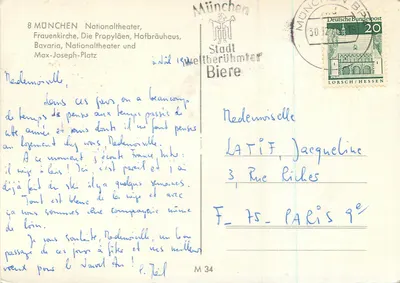 8 MÜNCHEN Nationaltheater,
Frauenkirche, Die Propyläen, Hofbräuhaus,
Bavaria, Nationaltheater und
Max-Joseph-Platz
München
Stadt
weltberühmter
Biere
MÜNCHEN
DEUTSCHE BUNDESPOST
20
LORSCH/HESSEN
Mademoiselle,
dans ces jours on a beaucoup
de temps de penser aux temps passés de
cette année et sans doute il faut penser
au logement chez vous, Mademoiselle.
A ce moment, j'écoute France Inter:
il neige à Ici c'est pareil et j'ai
déjà fait du ski il y a quelques semaines.
Tout est blanc de la neige et avec
ça nous sommes une compagnie même
de loin.
Je vous souhaite, Mademoiselle, un bon
passage de ces jours de fête et mes meilleurs
vœux pour le
Mademoiselle
LATIF, Jacqueline
3, Rue Riches
F-75-PARIS 9e
M 34